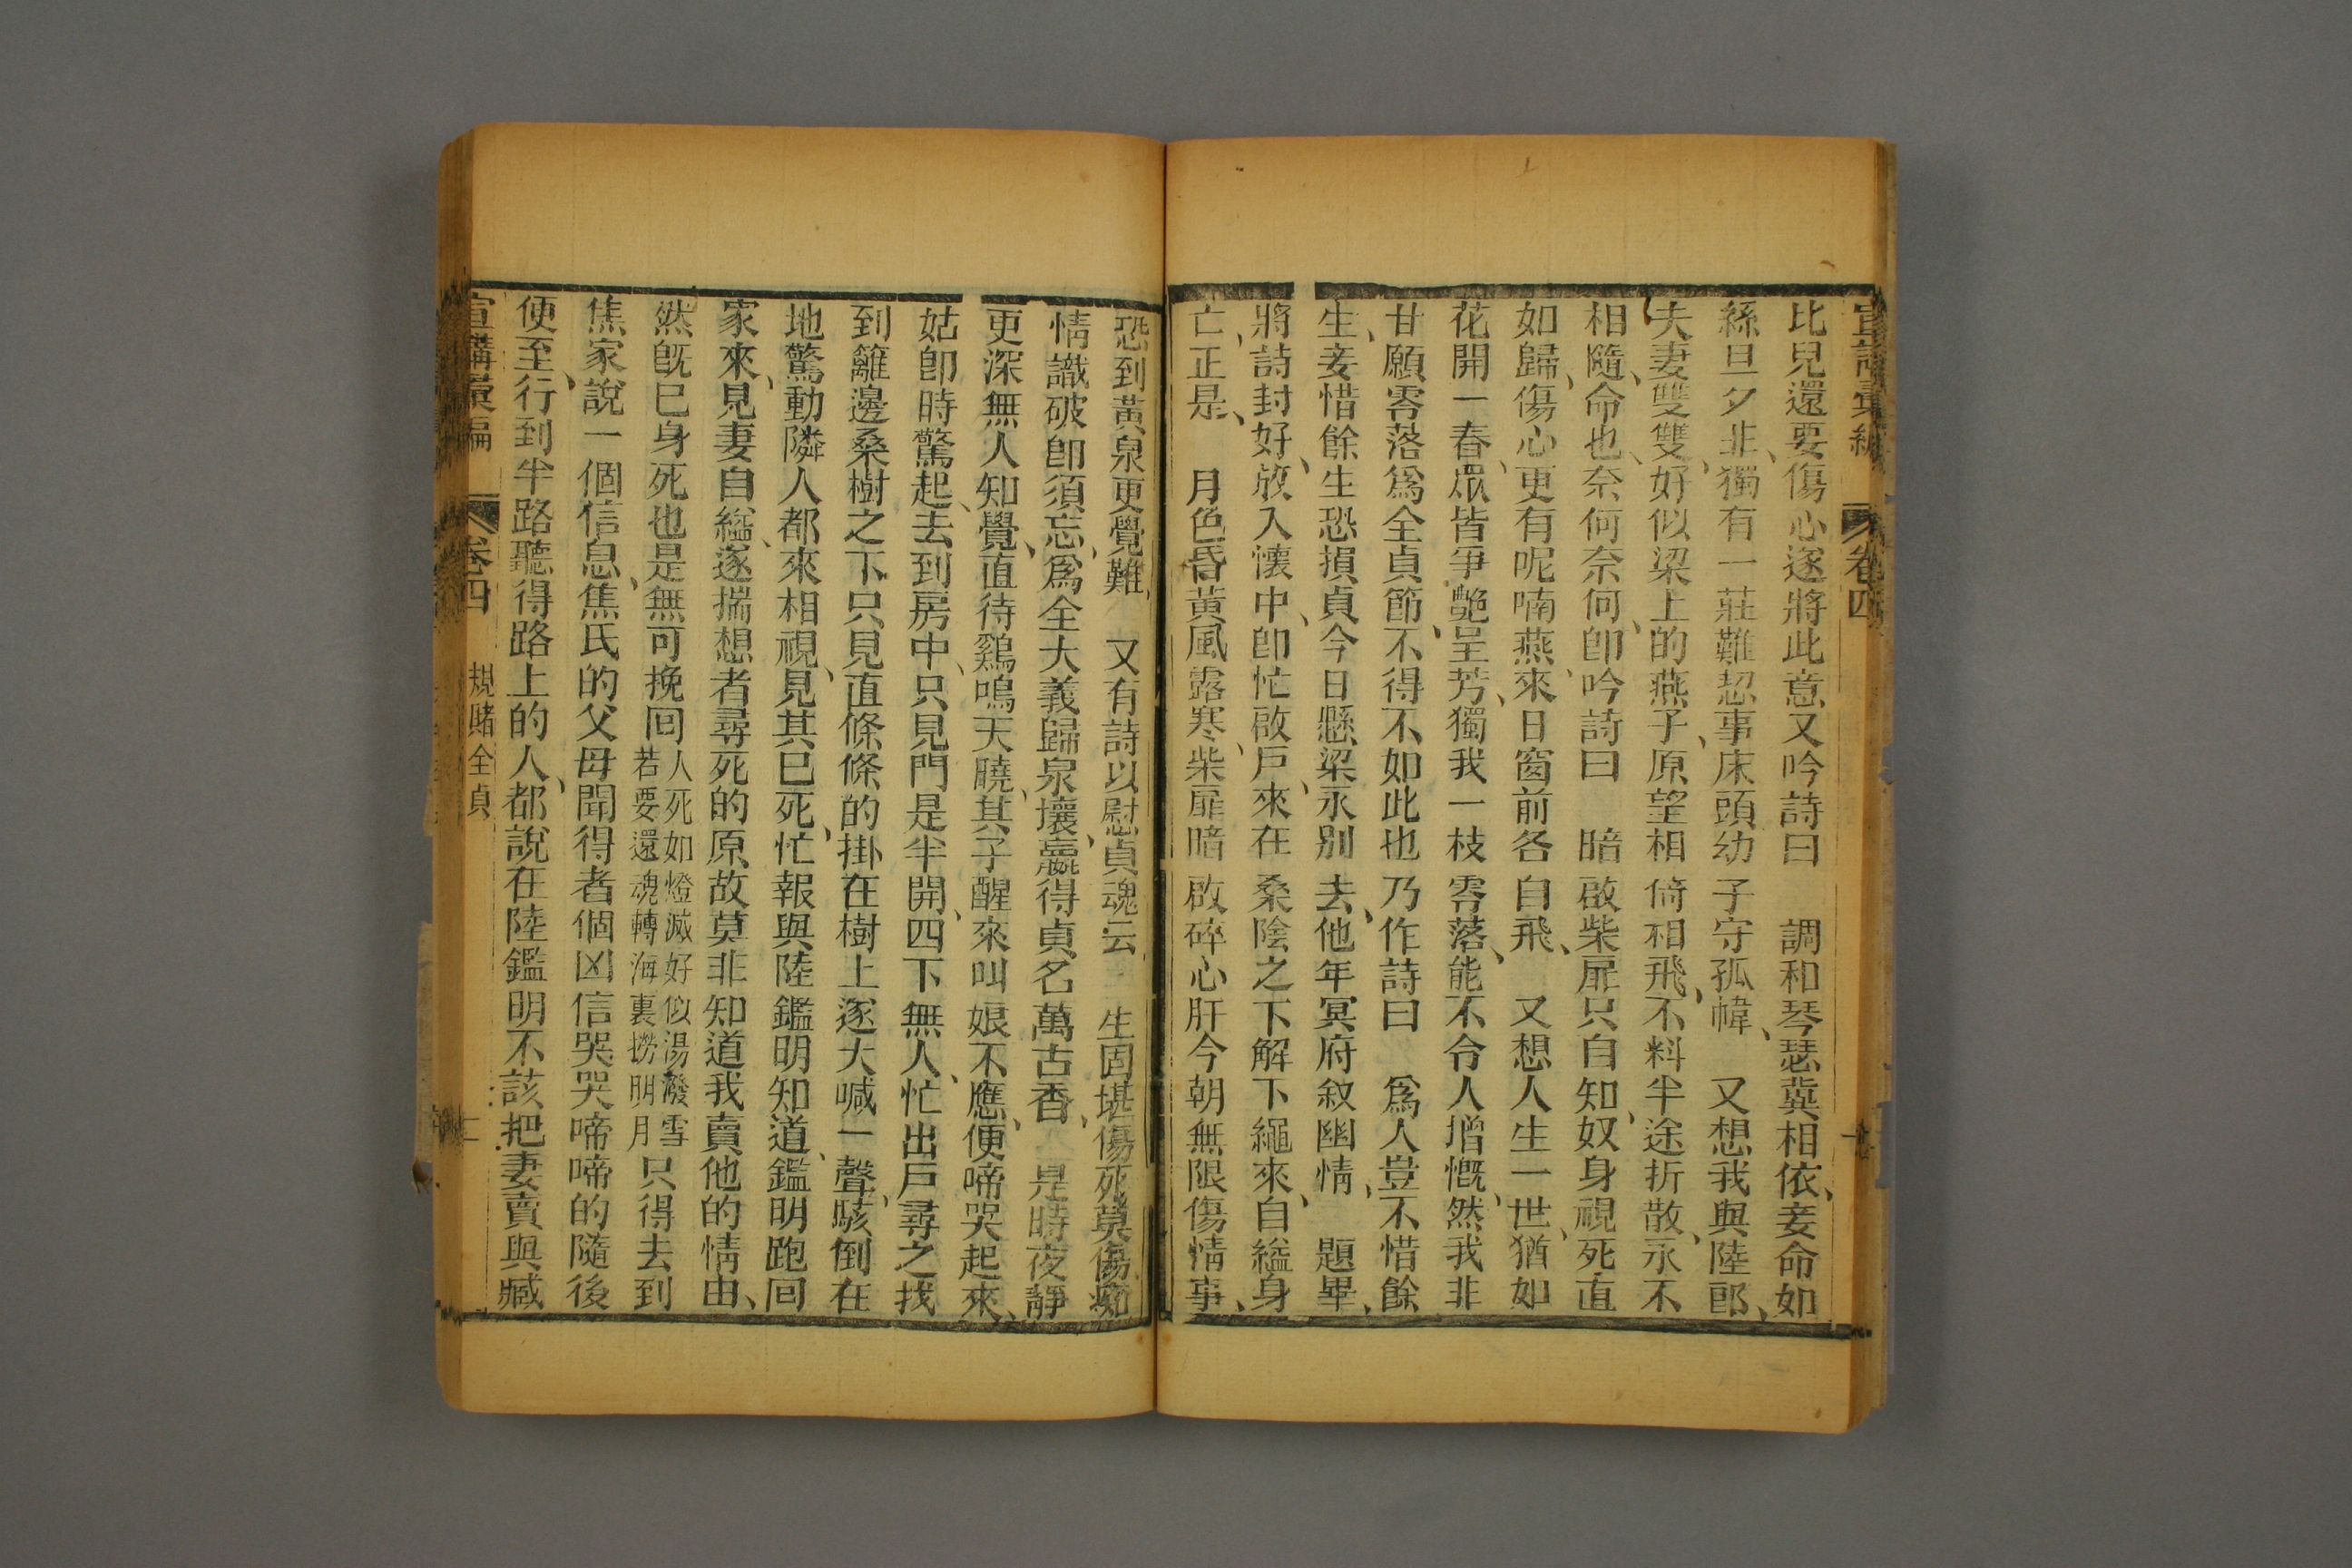 宣講彙編 卷四
比兒還要傷心遂將此意又吟詩曰 調和琴瑟冀相依、妾命如
絲旦夕非、獨有一莊難恝事床頭幼子守孤幃、 又想我與陸郎、
夫妻雙雙、好似梁上的燕子、原望相倚相飛、不料半途折散、永不
相隨、命也、奈何奈何、卽吟詩曰 暗啟柴扉只自知、奴身視死直
如歸、傷心更有呢喃燕、來日窗前各自飛、 又想人生一世、猶如
花開一春、眾皆爭艷呈芳、獨我一枝零落、能不令人增慨、然我非
甘願零落爲全貞節、不得不如此也乃作詩曰 爲人豈不惜餘
生、妾惜餘生恐損貞今日懸梁永别去、他年冥府敘幽情、 題畢、
將詩封好、放入懷中、卽忙啟戶、來在桑陰之下解下繩來、自縊身
亡、正是、 月色昏黃風露寒、柴扉暗啟碎心肝今朝無限傷情事、
恐到黃泉更覺難、 又有詩以慰貞魂云 生固堪傷死莫傷癡
情識破卽須忘、爲全大義歸泉壤、嬴得貞名萬古香、 是時夜靜
更深無人知覺、直待鷄鳴天曉、其子醒來叫娘不應、便啼哭起來、
姑卽時驚起、去到房中、只見門是半開、四下無人、忙出戶尋之找
到籬邊桑樹之下、只見直條條的掛在樹上遂大喊一聲、駭倒在
地驚動隣人都來相視、見其已死、忙報與陸鑑明知道、鑑明跑回
家來、見妻自縊、遂揣想者尋死的原故莫非知道我賣他的情由、
然旣巳身死也是無可挽回人死如燈滅好似湯潑雪若要還魂轉海裏撈明月只得去到
焦家說一個信息、焦氏的父母聞得者個凶信哭哭啼啼的隨後
便至、行到半路聽得路上的人、都說在陸鑑明不該把妻賣與臧
宣講彙編 卷四 規賭全貞